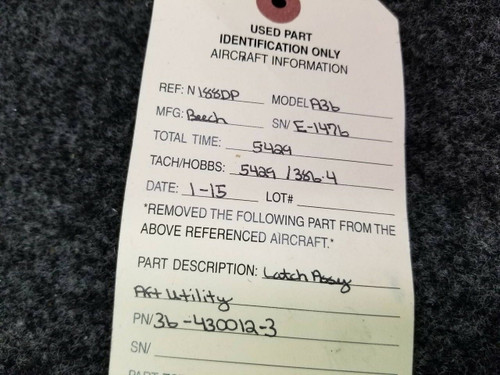 USED PART
IDENTIFICATION ONLY
AIRCRAFT INFORMATION
REF: N188DP MODEL A36
MFG: Beech SN/ E-1476
TOTAL TIME: 5429
TACH/HOBBS: 5429 / 386.4
DATE: 1-15 LOT#
*REMOVED THE FOLLOWING PART FROM THE
ABOVE REFERENCED AIRCRAFT.*
PART DESCRIPTION: Latch Assy
Aft Utility
PN/ 36-430012-3
SN/